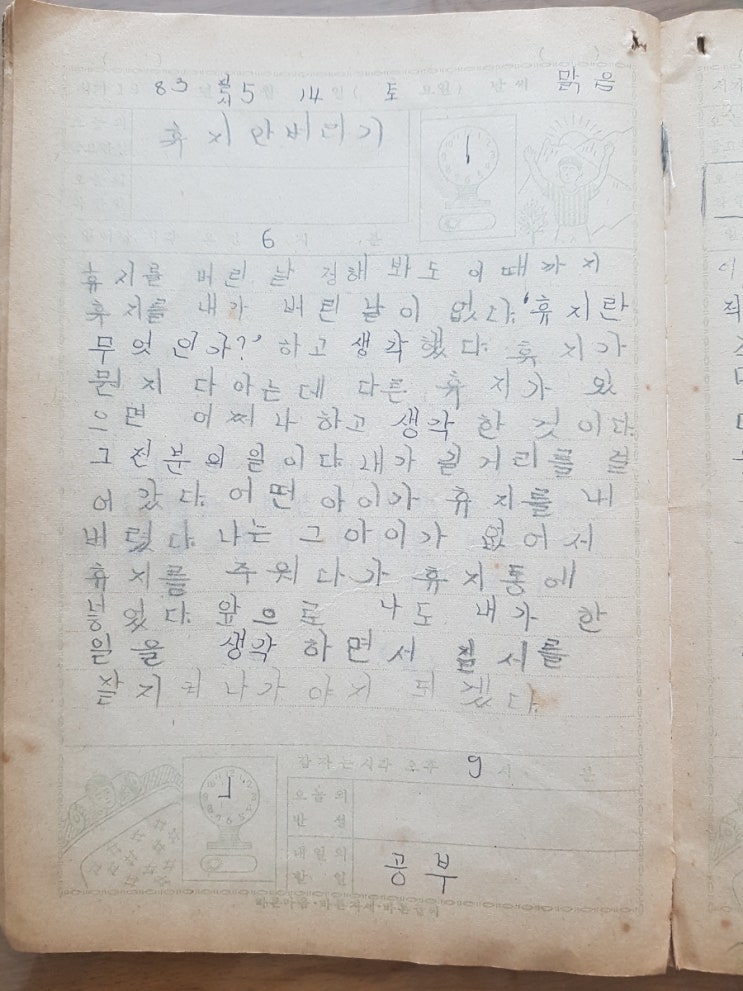 83 년 5 월 14 일 ( 토 요일) 날씨 맑음
오늘의
휴지안버리기
6 시 분
휴지를 버린 날 정해 봐도 이때까지
휴지를 내가 버린 날이 없다. '휴지란
무엇인가?' 하고 생각했다. 휴지가
뭔지 다아는데 다른 휴지가 있
으면 어쩌나 하고 생각한 것이다.
그전분의 일이다. 내가 길거리를 걸
어 갔다. 어떤 아이가 휴지를 내
버렸다. 나는 그 아이가 없어서
휴지를 주워다가 휴지통에
넣었다. 앞으로 나도 내가 한
일을 생각하면서 질서를
잘지켜나가야지 되겠다.
잠자는시각 오후 9 시 분
오늘의
반 성
내일의
할 일
공부
바른마음·바른자세·바른글씨